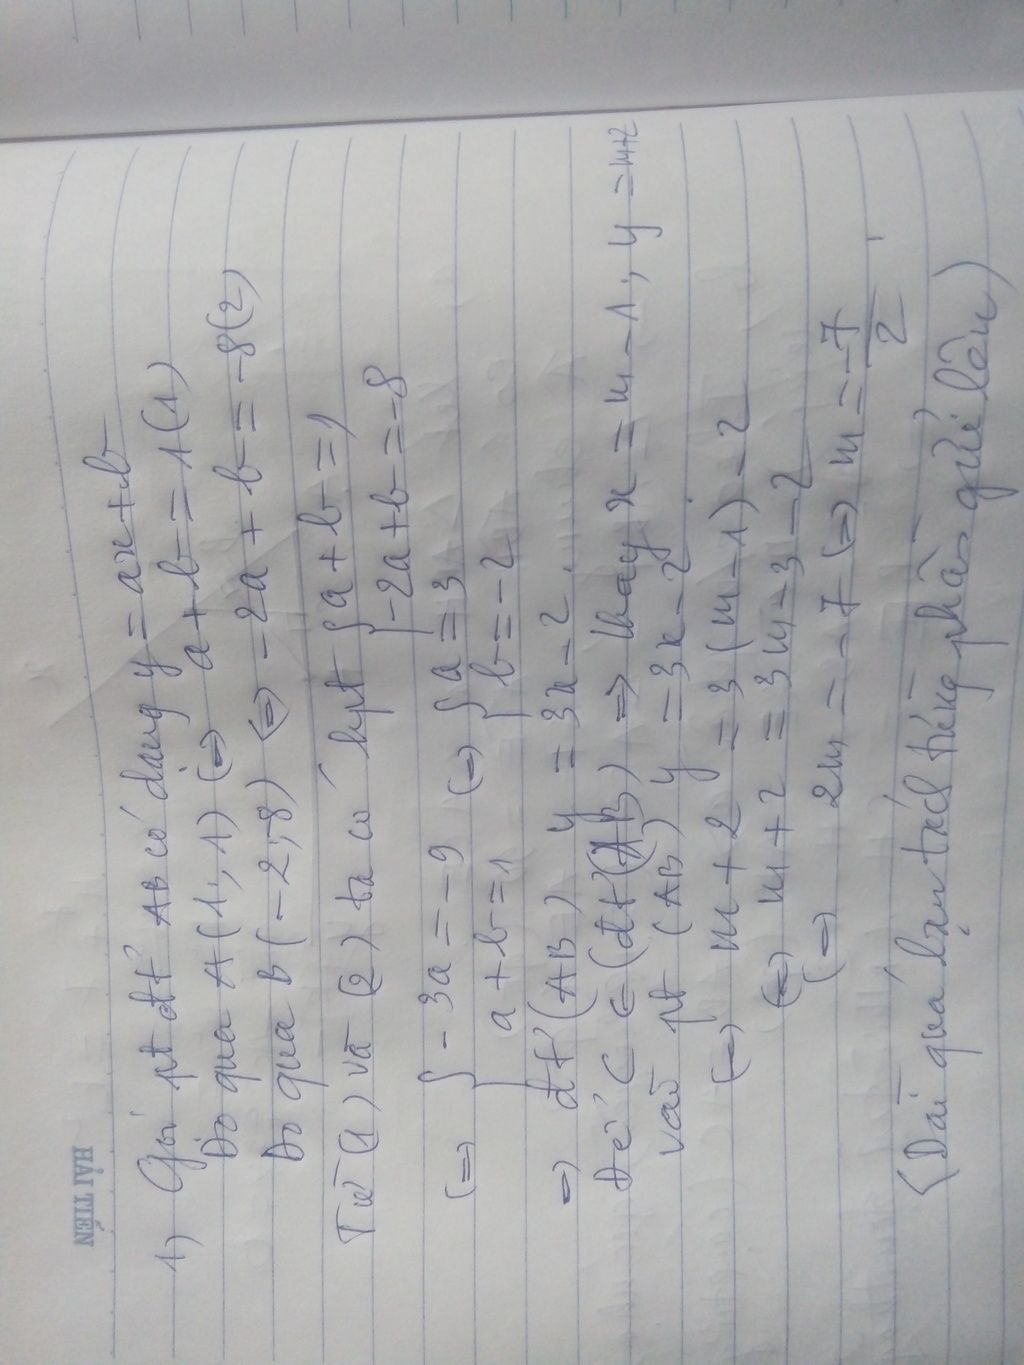 HẢI TIẾN
1) Gọi pt đt' AB có dạng y = ax+b
Do qua A(1;1) (=) a+b=1(1)
Do qua B(-2;-8) (=) -2a+b=-8(2)
Từ (1) và (2) ta có hpt { a+b=1
-2a+b=-8
(=) { -3a=-9 (=) { a=3
a+b=1 b=-2
=> đt' (AB) y=3x-2.
Để C ∈ (đt'(AB) => thay x=m-1, y=m+2
vào pt (AB) y=3x-2.
(=) m+2=3(m-1)-2
(=) m+2=3m-3-2
(=) 2m=-7 (=) m=-7/2
(Dài quá bạn tách từng phần gửi lên)